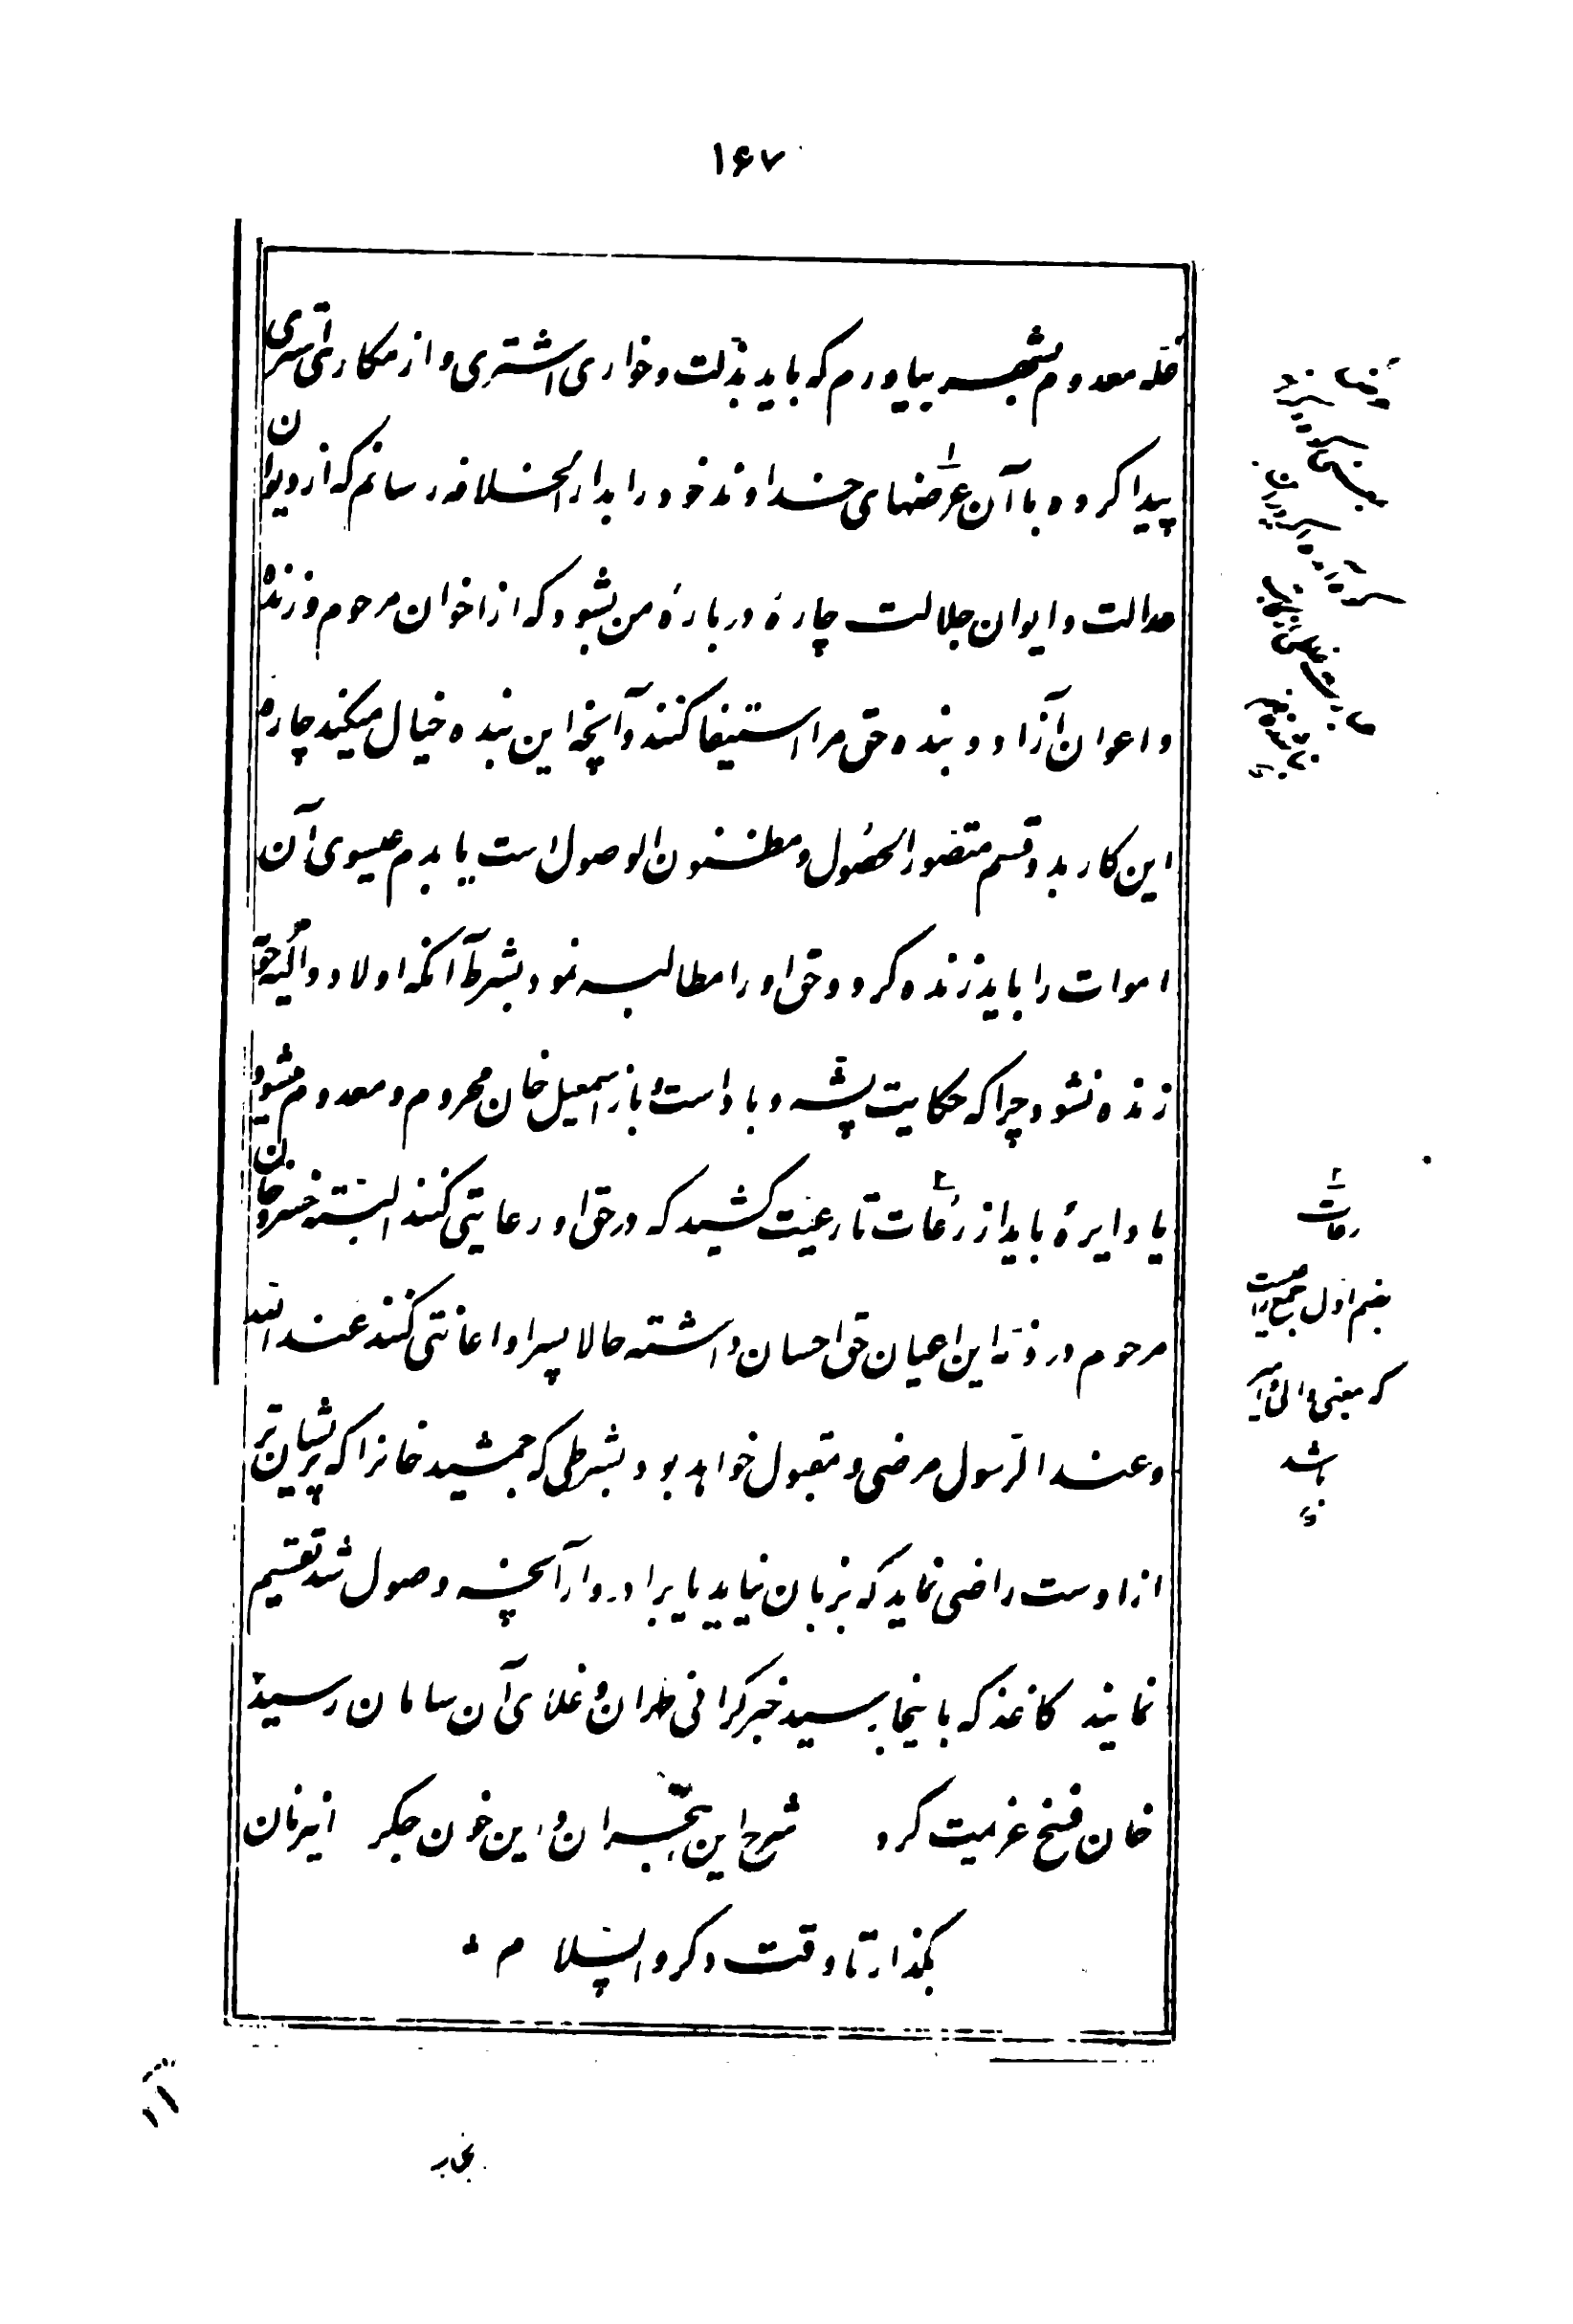 ۱۶۷
غله معدوم بشهر بیاورم که باید بذلت و خواری اشتری و از مکاری استری
پیدا کرده با آن عرضهای خداوند خود را بدار الخلافه رسانم که از دیوان
عدالت و ایوان جلالت چارهٔ دربارهٔ من بشود که از اخوان مرحوم و زنده
و اعوان آزاد و بنده حق مرا استیفا کنند و آنچه این بنده خیال میکند چاره
این کار بدو قسم متصور الحصول و مظنون الوصول است یا بدم عیسوی آن
اموات را باید زنده کرد و حق او را مطالبه نمود بشرط آنکه اولاد و
زنده نشود چرا که حکایت پشه و باد است و باز اسمعیل خان محروم و معدوم میشود
یا دایرهٔ باید از رعات تا رعیت کشید که در حق او رعایتی کنند البته خسرو خان
مرحوم در ذمه این اعیان حق احسان داشته حالا پسر او اعانتی کنند عند الله
و عند الرسول مرضی و مقبول خواهد بود بشرطی که جمشید خانرا که پریشان تر
از اوست راضی نماید که بزبان نیاید یا برادروار آنچه وصول شد تقسیم
نمایند کاغذ که باینجا رسید خبر گرانی طهران و غلای آن سامان رسید
خان فسخ عزیمت کرد شرح این هجران و این خون جگر این زمان
بگذار تا وقت دگر والسلام
رعات
بضم اول جمع راعیست
که بمعنی والی و امیر
باشد